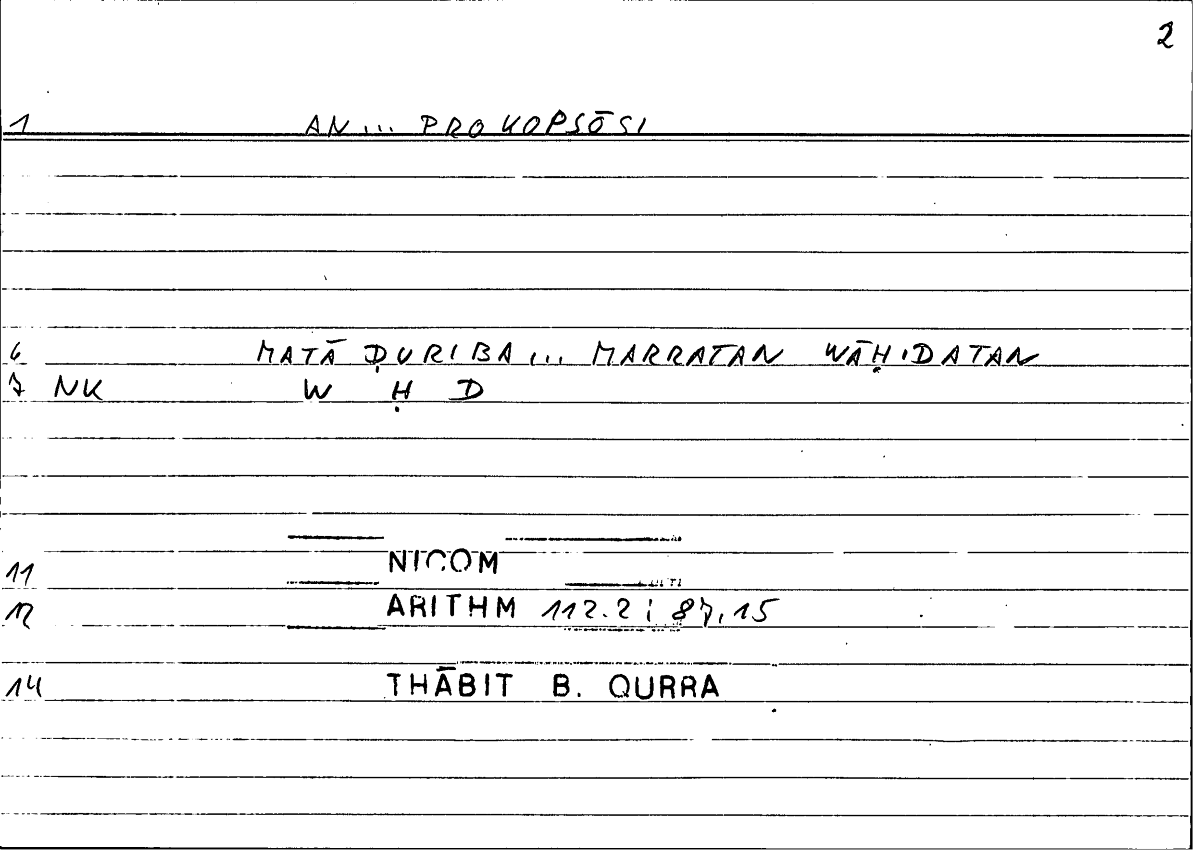 2
1 AN ... PROKOPSŌSI
6 MATĀ ḌURIBA ... MARRATAN WĀḤIDATAN
7 NK W Ḥ D
11 NICOM
12 ARITHM 112.2 ; 87,15
14 THĀBIT B. QURRA